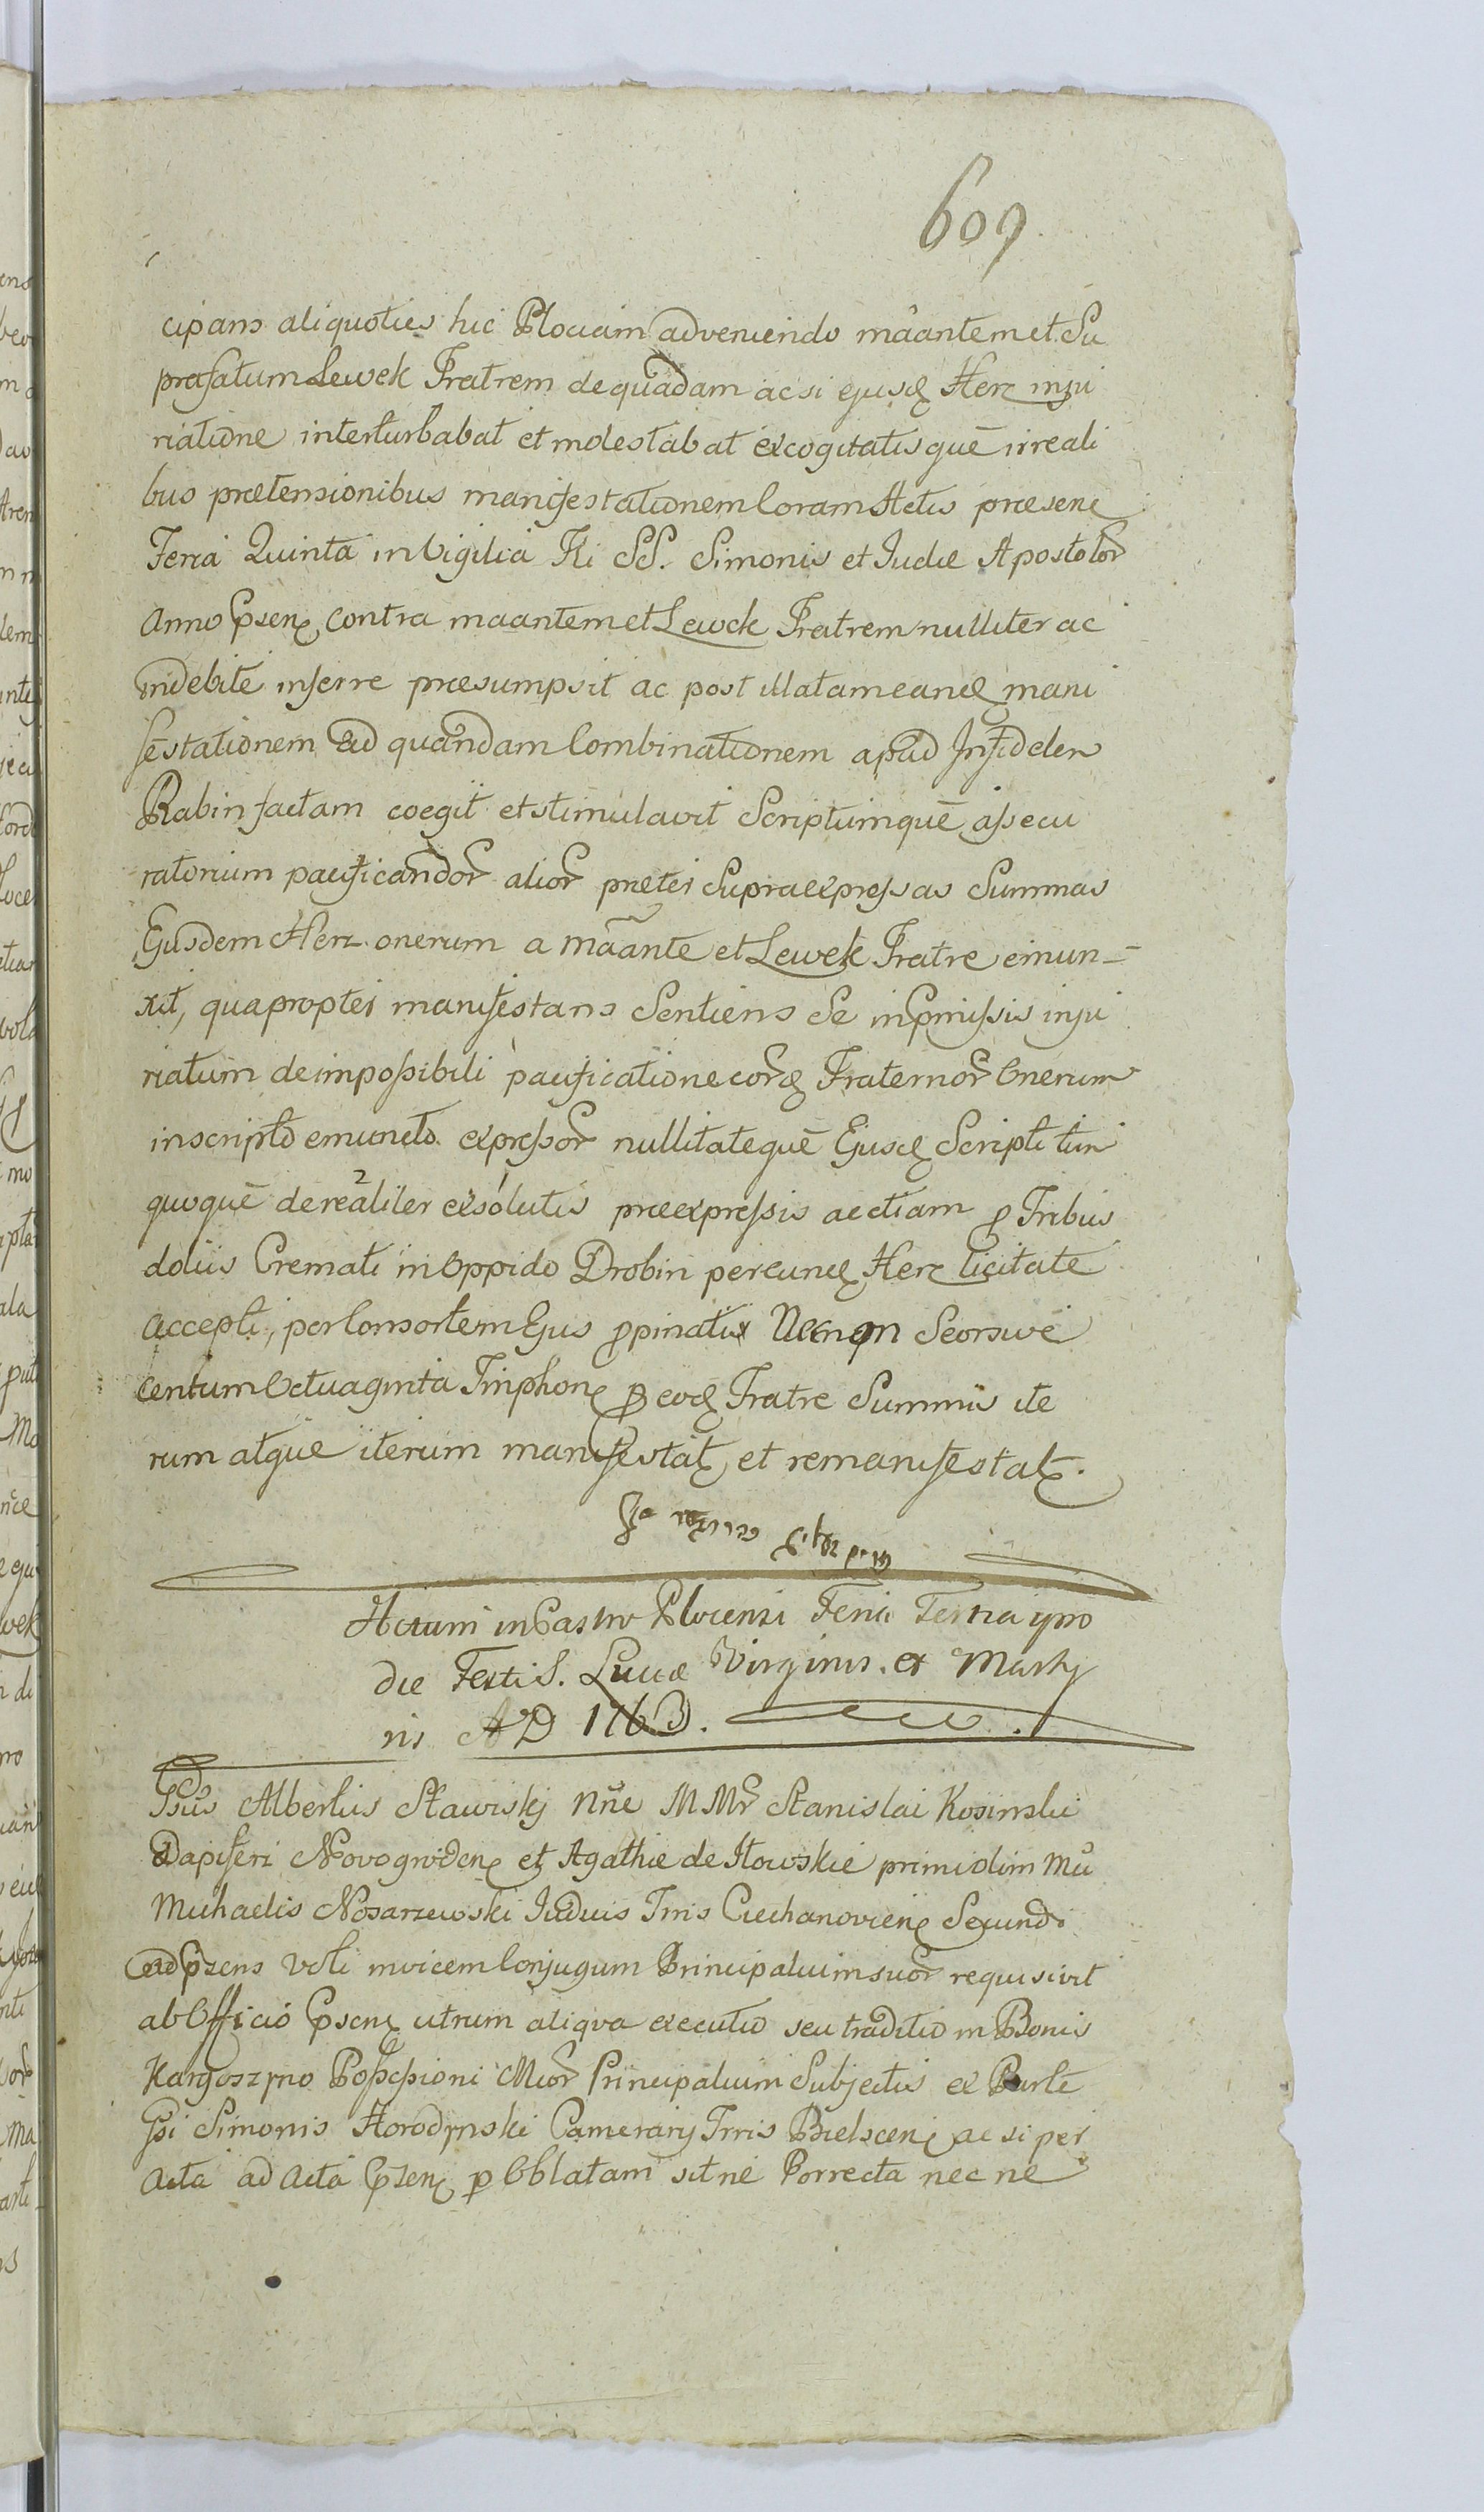 609
cipans aliquoties hic Plociam adveniendo mãantem et Su
prafatum Lewek Fratrem de quadam ac si ejusdę Herz inju
riatione interturbabat et molestabat excogitatisque irreali
bus prætensionibus manifestationem Coram Actis præsenę
Feria Quinta in Vigilia Fti SS. Simonis et Judæ Apostolor
Anno Pṗsenę contra maantem et Lewek Fratrem nulliter ac
indebite inferre præsumpsit ac post illatam eandę mani
festationem ad quandam Combinationem apud Infidelem
Rabin factam coegit et stimulavit Scriptumque assecu
ratorium pacificandor alior præter Supraexpressas Summas
Ejusdem Herz onerum a mãante et Lewek Fratre emun=
xit, quapropter manifestans Sentiens Se in pmissis inju
riatum de impossibili pacificatione eordę Fraternor Onerum
in scripto emuncto expressor nullitateque Ejusdę Scripti tum
quoque de realiter exsolutis præexpressis ac etiam p Tribus
doliis Cremati in Oppido Drobin per eundę Herz licitate
accepti, per Consortem Ejus ppinatis Necnon Seorsive
Centum Octuaginta Tinphonę p eodę Fratre Summis ite
rum atque iterum manifestatę et remanifestatę.
Actum in Castro Plocensi Feria Tertia ipso
die Festi S. Luciæ Virginis et Marty
ris A D 1763.
Gsus Albertus Sławiski Nne M Mr Stanislai Kosinski
Dapiferi Novogrodenę et Agathæ de Iłowskie primi olim Mci
Michaelis Nosarzewski Judicis Trris Ciechanovienę Secundi
ad pṡens Voti invicem Conjugum Principalium suor requisivit
ab Officio Pṡenę utrum aliqva executio seu traditio in Bonis
Kargoszyno Possessioni Mcor Principalium Subjectis ex Parte
Gsi Simonis Horodynski Camerarij Trris Bielscenę ac si per
acta ad Acta Pṡenę p Oblatam sit ne Porrecta nec ne